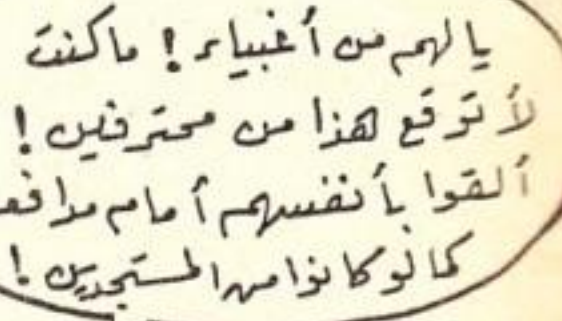 يا لهم من أغبياء ! ما كنت
لأتوقع هذا من محترفين !
ألقوا بأنفسهم أمام مدافع
كما لو كانوا من المستجدين !